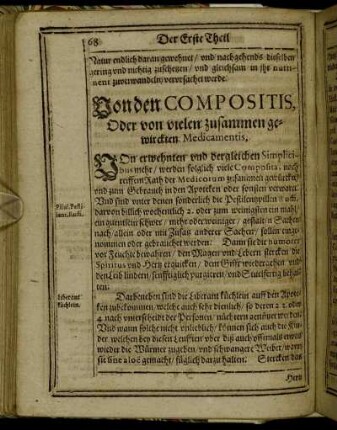 68 Der Erste Theil
Natur endlich daran gewehnet / und nachgehends dieselben
gering und nichtig zuschetzen / und gleichsam in ihr nutri-
ment zuverwandeln / verursachet werde.
Von den COMPOSITIS,
Oder von vielen zusammen ge-
wirckten Medicamentis.
VOn erwehnten und dergleichen Simplici-
bus mehr / werden folglich viele Composita, nach
treffem Rath der Medicorum zusammen
und zum Gebrauch in den Apoteken oder sonsten verwaret.
Und sind unter denen sonderlich die Pestilentzpillen
davon billich wochentlich 2. oder zum wenigsten ein mahl
ein quentlein schwer / mehr oder weniger / gestalten Sachen
nach / allein oder mit Zusatz anderer Sachen / sollen einge-
nommen oder gebrauchet werden. Dann sie die humores
vor Feuchte bewahren / den Magen und Lebern stercken die
Spiritus und Hertz erquicken / dem Gifft wiederstehen und
den Leib lindern / senfftiglich purgieren / und Stuelfertig be-
halten.
Pilul. Pesti-
lent. Ruffi.
Darbeneben sind die Liberant küchlein auff den Apote-
ken zubekommen / welche auch sehr dienlich / so deren 2. 3. oder
4. nach unterscheidt der Personen / nüchtern genützet werden.
Und wann solche nicht unlieblich / können sich auch die Kin-
der, welchen bey diesen Leufften ober diß auch offtermals
wieder die Würmer zugeben / und schwangere Weiber / wenn
sie gemacht / füglich darzu halten. Stercken das
Liberant
küchlein.
Hertz